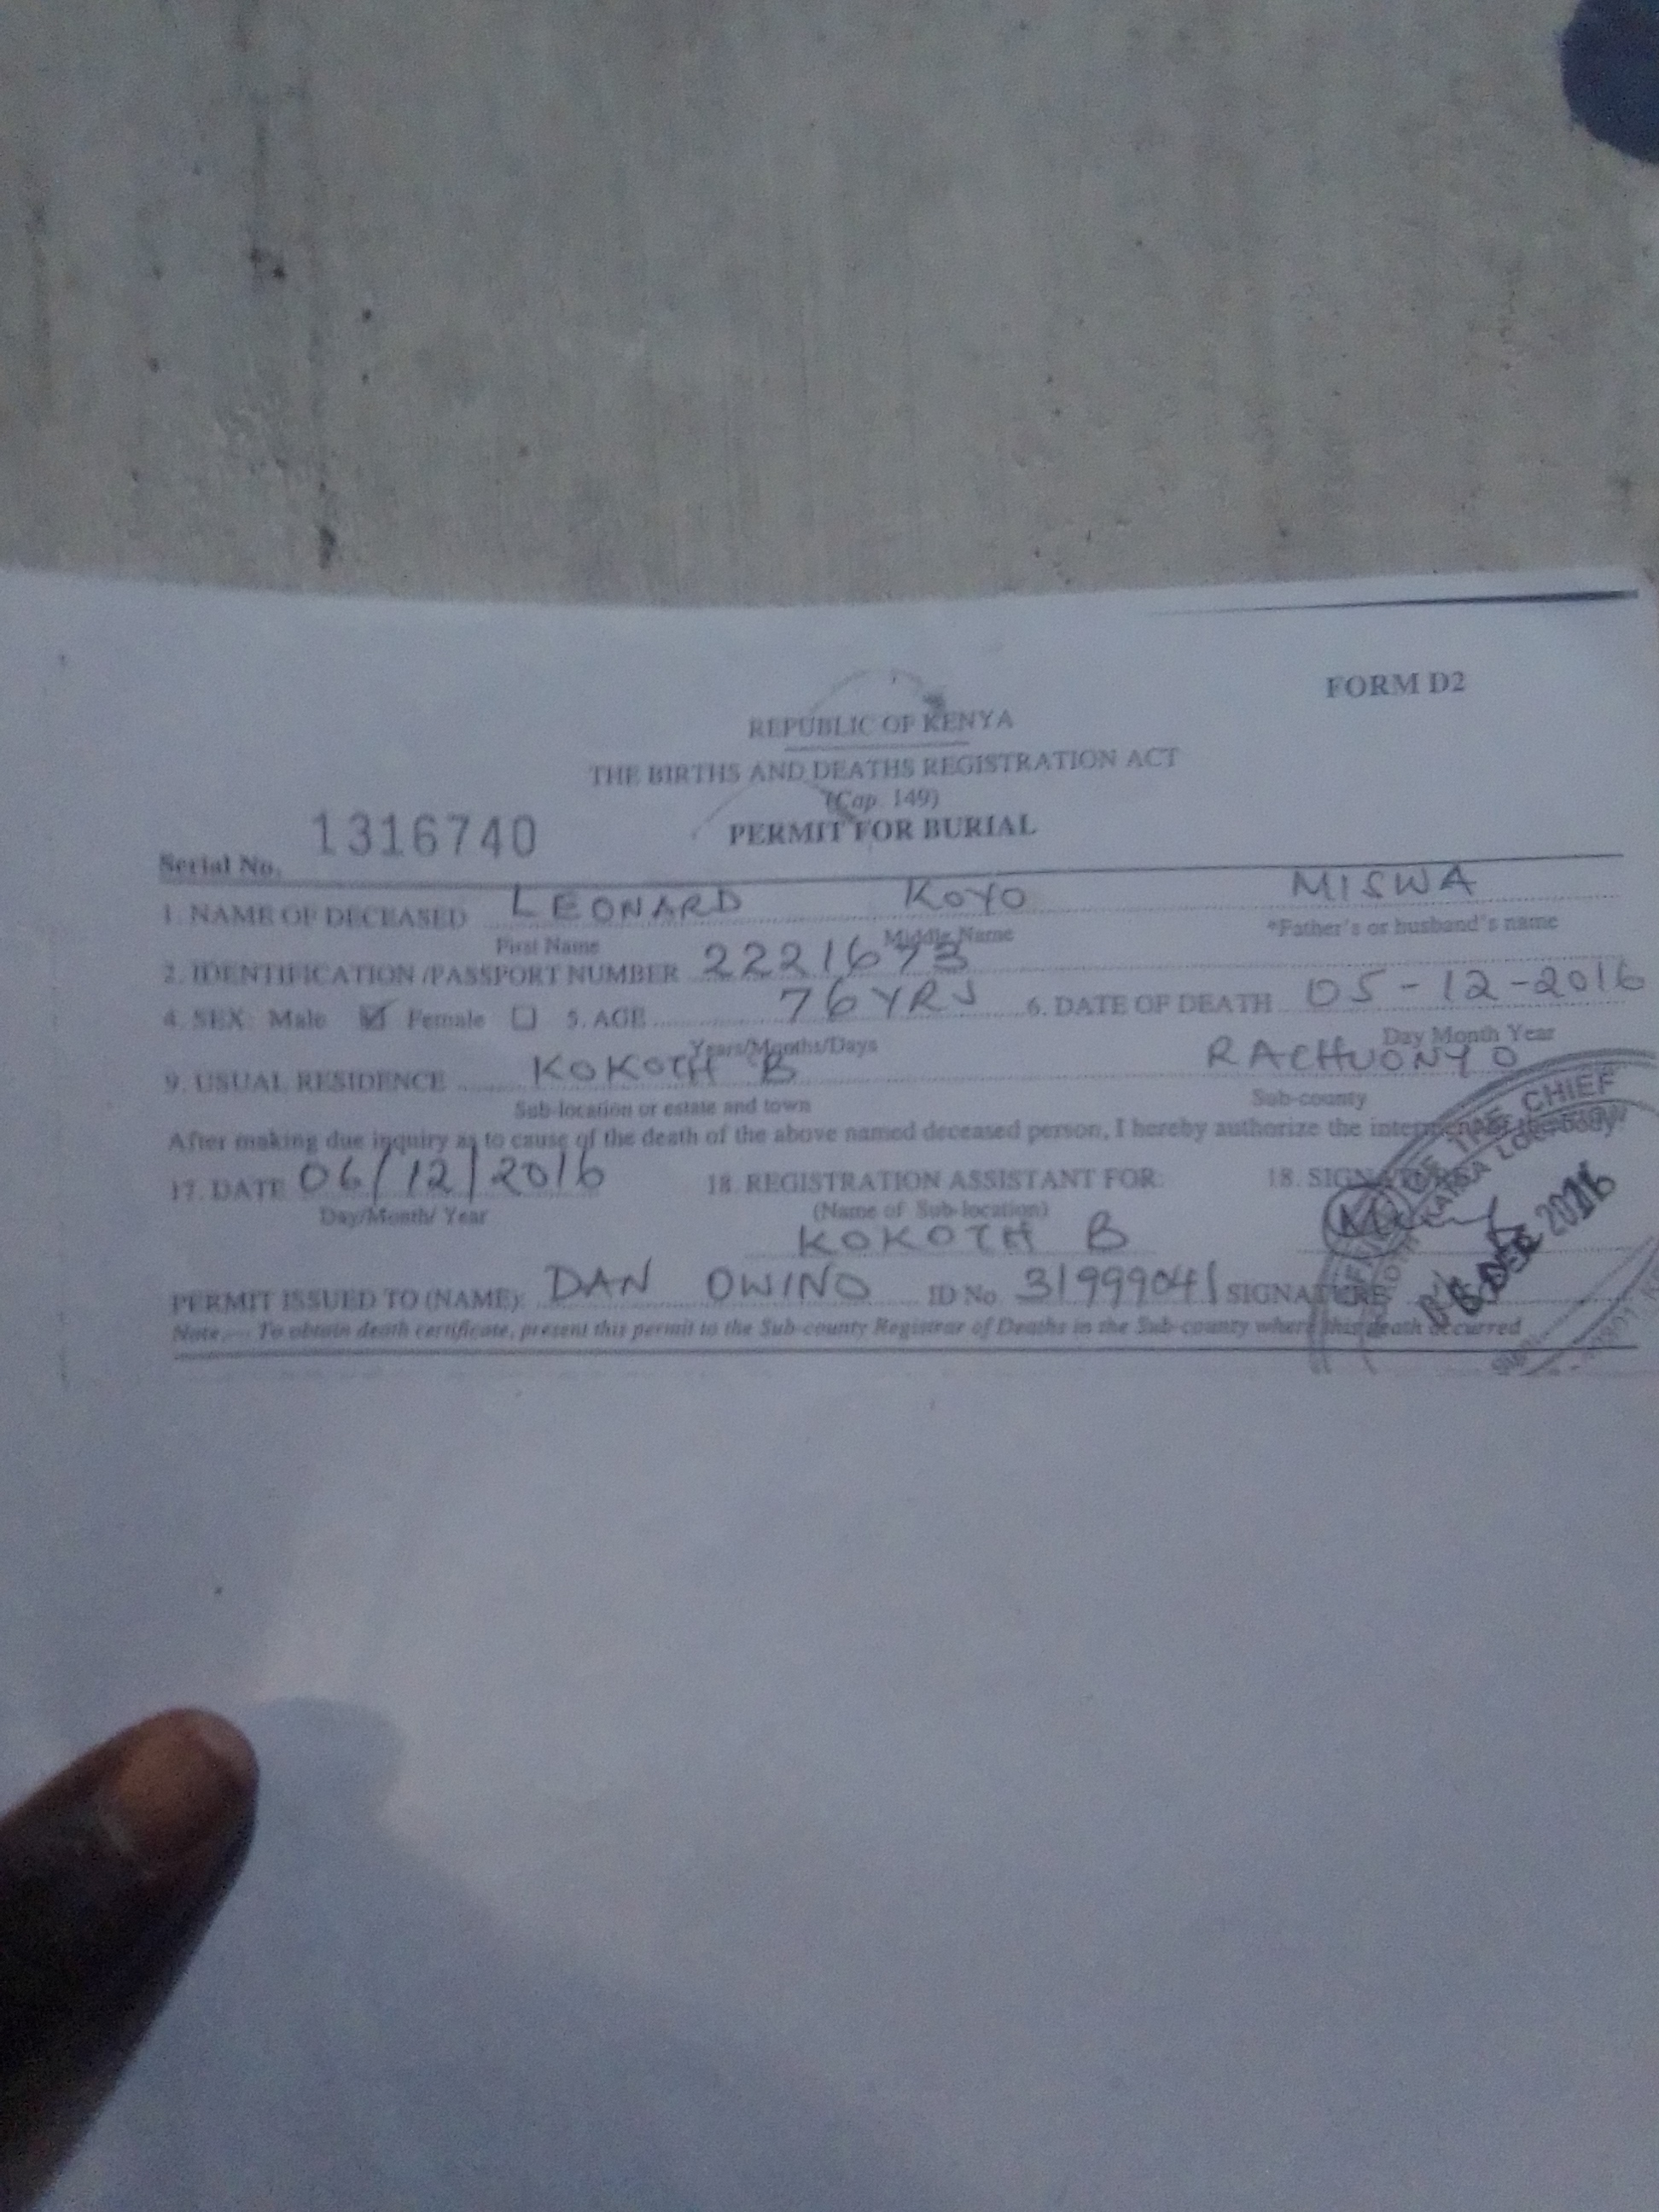 FORM D2
REPUBLIC OF KENYA
THE BIRTHS AND DEATHS REGISTRATION ACT
(Cap. 149)
PERMIT FOR BURIAL
Serial No. 1316740
1. NAME OF DECEASED LEONARD KOYO MISWA
First Name Middle Name *Father's or husband's name
2. IDENTIFICATION /PASSPORT NUMBER 2221673
4. SEX: Male ☑ Female ☐ 5. AGE 76 YRS 6. DATE OF DEATH 05-12-2016
Years/Months/Days Day Month Year
9. USUAL RESIDENCE KOKOTH B RACHUONYO
Sub-location or estate and town Sub-county
After making due inquiry as to cause of the death of the above named deceased person, I hereby authorize the
17. DATE 06/12/2016 18. REGISTRATION ASSISTANT FOR: 18. SIGNATURE
Day/Month/ Year (Name of Sub-location)
KOKOTH B
PERMIT ISSUED TO (NAME): DAN OWINO ID No. 31999041 SIGNATURE
Note.— To obtain death certificate, present this permit to the Sub-county Registrar of Deaths in the Sub-county where this death occurred
THE CHIEF
DEC 2016